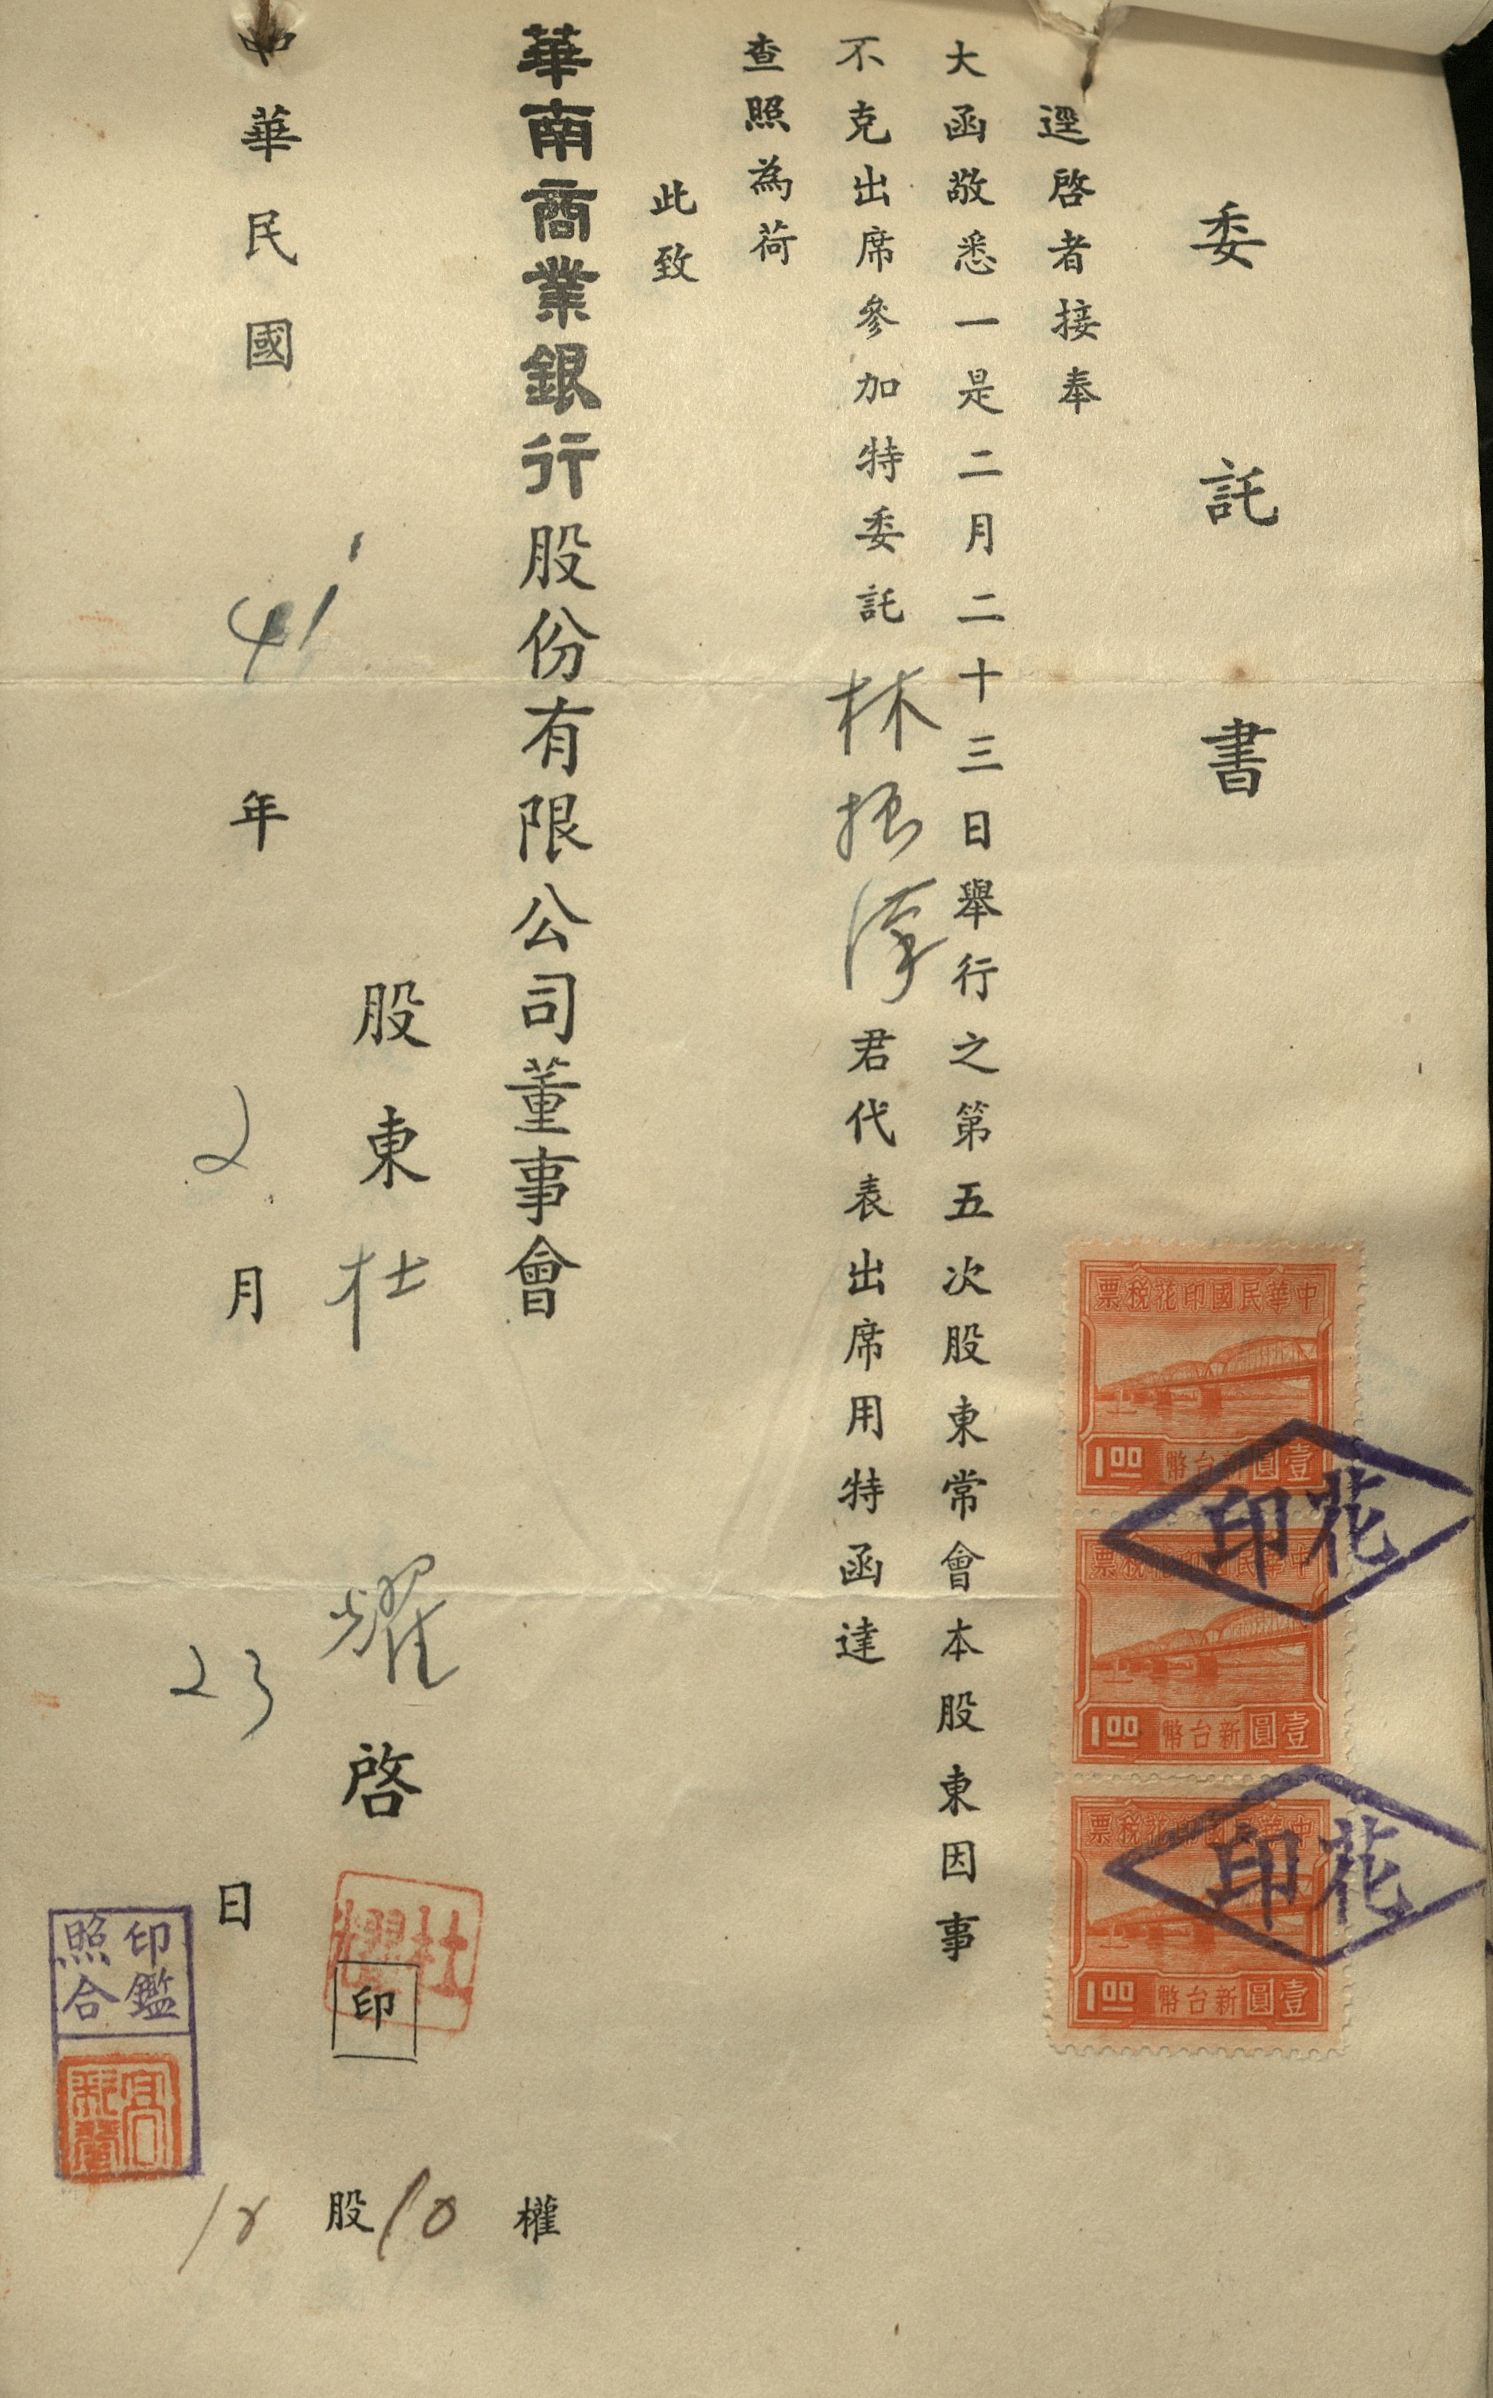 委託書
逕啓者接奉
大函敬悉一是二月二十三日舉行之第五次股東常會本股東因事
不克出席參加特委託林振漢君代表出席用特函達
查照為荷
此致
華南商業銀行股份有限公司董事會
股東杜耀啓
印
杜耀
中華民國41年2月23日
股10權
印鑑
照合
中華民國印花稅票
1.00 新台幣壹圓
中華民國印花稅票
1.00 新台幣壹圓
中華民國印花稅票
1.00 新台幣壹圓
印花
印花